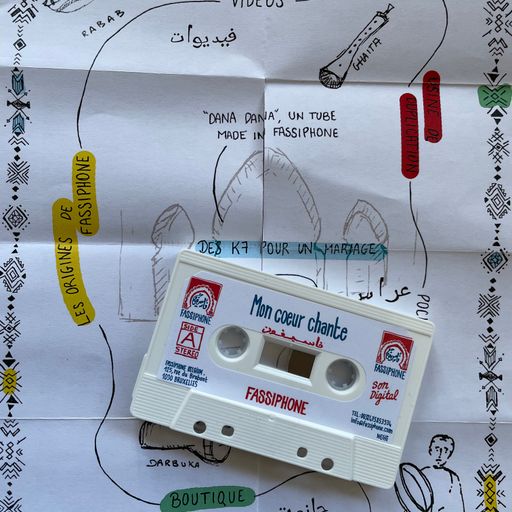 VIDEOS
RABAB
فيديوات
GHAITA
"DANA DANA", UN TUBE
MADE IN FASSIPHONE
USINE DE
DUPLICATION
LES ORIGINES DE
FASSIPHONE
DES K7 POUR UN MARIAGE
Mon coeur chante
فاسيفون
FASSIPHONE
SIDE
A
STEREO
FASSIPHONE BELGIUM
rue du Brabant
1030 BRUXELLES
FASSIPHONE
FASSIPHONE
son
Digital
info@fassiphone.com
DARBUKA
BOUTIQUE